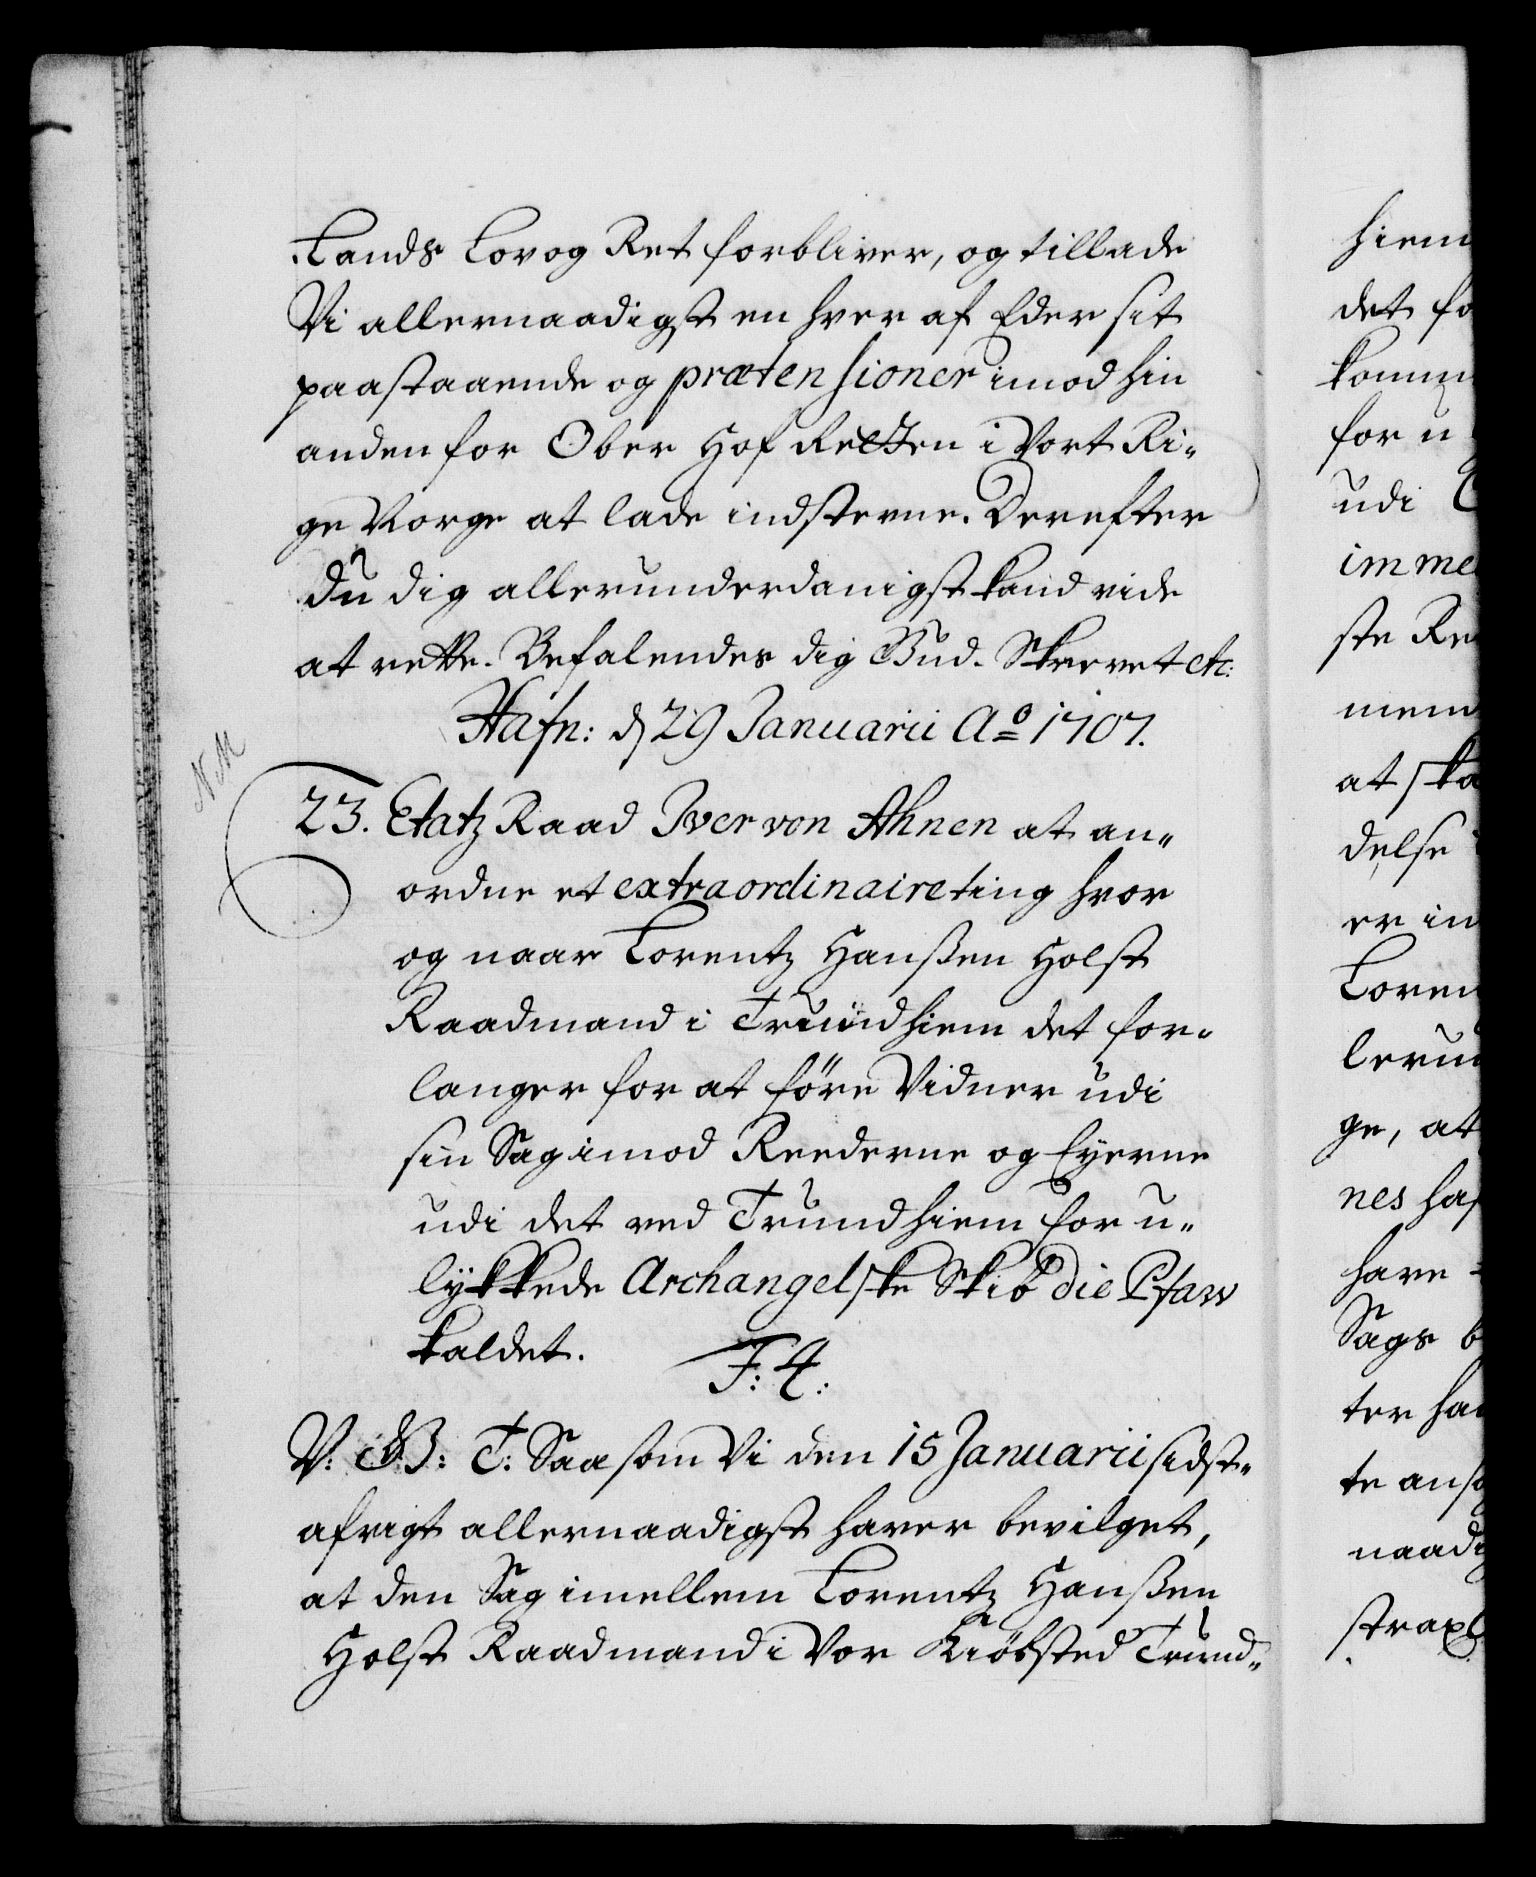 Lands Lov og Ret forbliver, og tillade
Vi allernaadigst en hver af Eder sit
paastaaende og prætensioner imod hin
anden for Ober Hof Retten i Vort Ri-
ge Norge at lade indstevne. Derefter
du dig allerunderdanigst kand vide
at rette. Befalendes dig Gud. Skrevet etc:
Hafn: d 29 Januarii Ao 1707.
N.M
23. Etatz Raad Iver von Ahnen at an-
ordne et extraordinaire ting hvor
og naar Lorentz Hanßen Holst
Raadmand i Trundhiem det for-
langer for at före Vidner udi
sin Sag imod Reederne og Eyerne
udi det ved Trundhiem for u-
lykkede Archangelske Skib die Pfaw
kaldet.
F: 4:
V: G: T: Saasom Vi den 15 Januarii sidst-
afvigt allernaadigst haver bevilget,
at den Sag imellem Lorentz Hanßen
Holst Raadmand i Vor Kiöbsted Trund-
hiem
det fo
komm
for u
udi
imme
ste Re
mem
at ska
delse
er in
Loren
lerun
ge, at
nes haf
have
Sags b
ter ha
te ans
naadig
strax